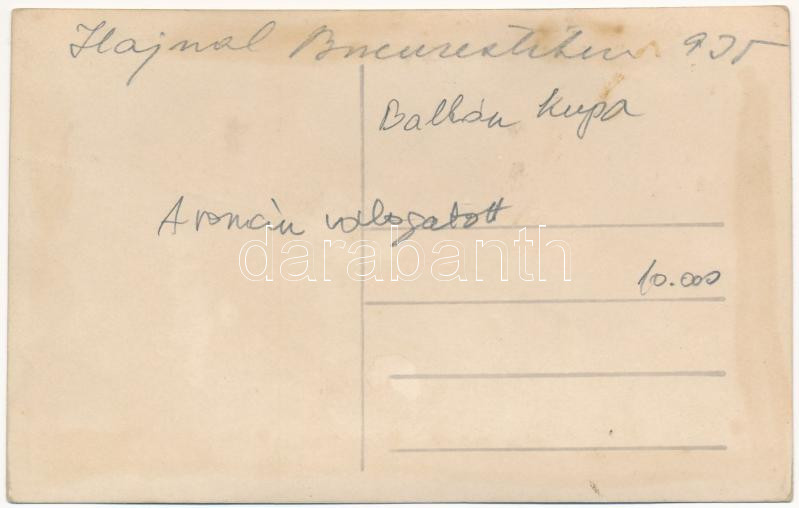 Hajnal Bucurestiben 935
Balkán Kupa
A román válogatott
darabanth
10.000